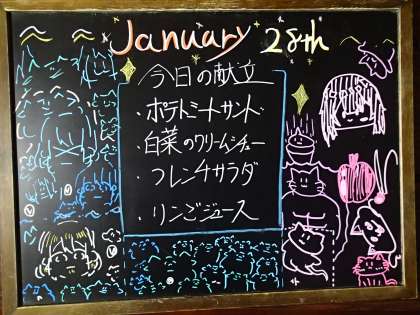 January 28th
今日の献立
・ポテトミートサンド
・白菜のクリームシチュー
・フレンチサラダ
・リンゴジュース